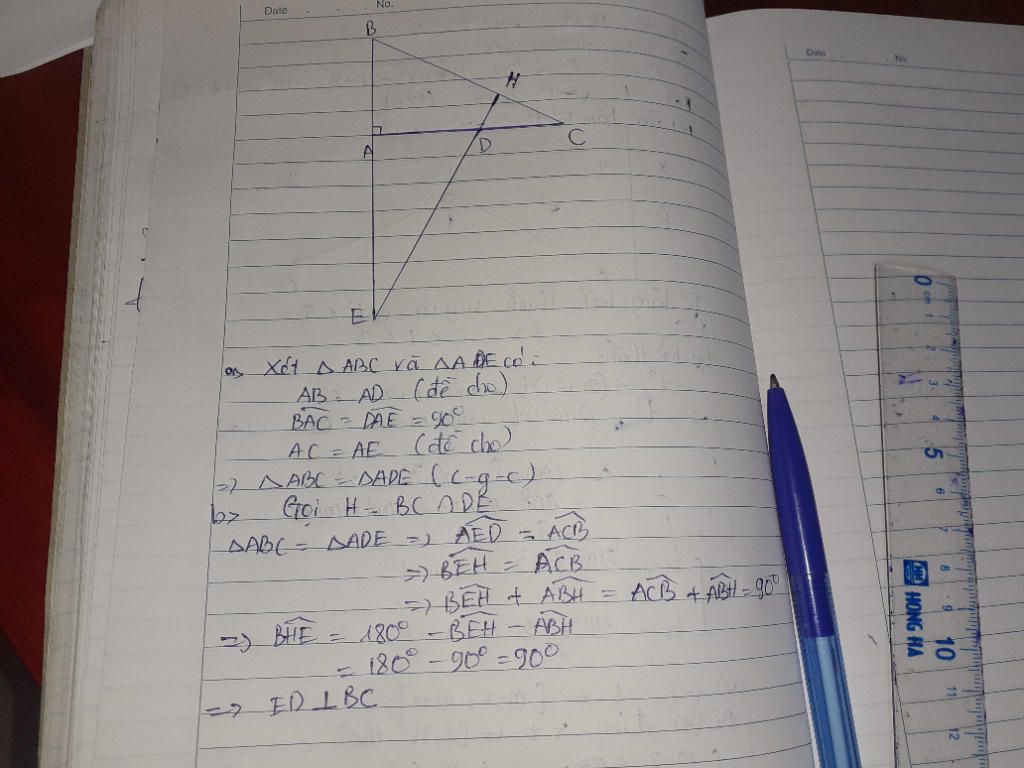 Date No.
B
H
A
D
C
E
a> Xét △ABC và △ADE có:
AB = AD (đề cho)
BAC = DAE = 90°
AC = AE (đề cho)
=> △ABC = △ADE (c-g-c)
b> Gọi H = BC ∩ DE
△ABC = △ADE => AED = ACB
=> BEH = ACB
=> BEH + ABH = ACB + ABH = 90°
=> BHE = 180° - BEH - ABH
= 180° - 90° = 90°
=> ED ⊥ BC
A
Date No.
0 cm
1
2
3
4
5
6
7
8
HONG HA
9
10
11
12